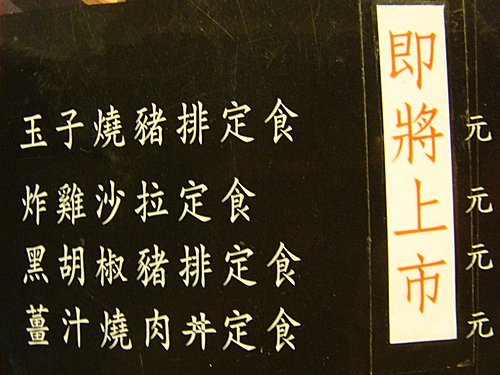 玉子燒豬排定食 元
炸雞沙拉定食 元
黑胡椒豬排定食 元
薑汁燒肉丼定食 元
即將上市